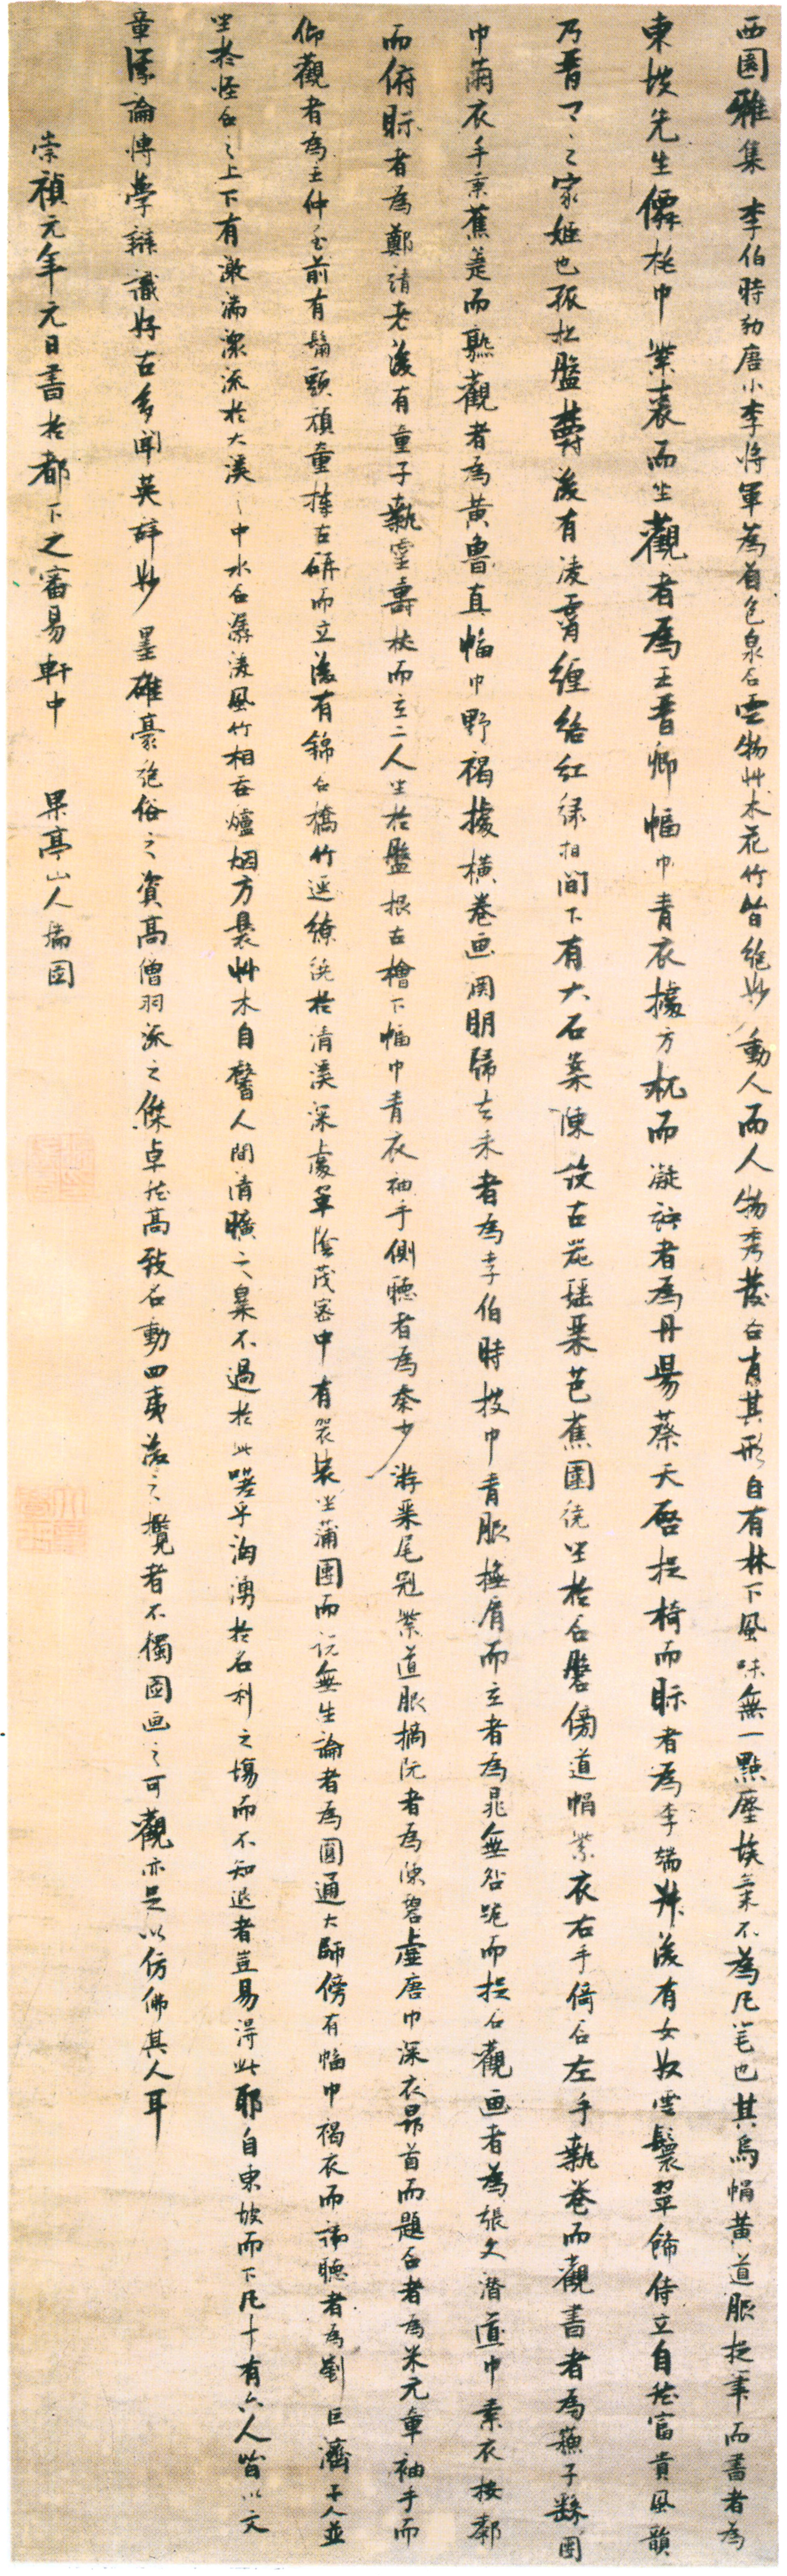 西園雅集 李伯時効唐小李將軍為着色泉石雲物艸木花竹皆絕妙動人而人物秀發各肖其形自有林下風味無一點塵埃氣不為凡筆也其烏帽黃道服捉筆而書者為
東坡先生僊桃巾紫裘而坐觀者為王晉卿幅巾青衣據方机而凝竚者為丹陽蔡天啓捉椅而眎者為李端叔後有女奴雲鬟翠飾侍立自然富貴風韻
乃晉卿之家姬也孤松盤鬱後有凌霄纏絡紅綠相間下有大石案陳設古器瑤琹芭蕉圍繞坐於石磐傍道帽紫衣右手倚石左手執卷而觀書者為蘇子繇團
巾繭衣手秉蕉箑而熟觀者為黃魯直幅巾野褐據橫卷画淵明歸去來者為李伯時披巾青服撫肩而立者為晁無咎跪而捉石觀画者為張文潛道巾素衣按郄
而俯眎者為鄭靖老後有童子執靈壽杖而立二人坐於盤根古檜下幅巾青衣袖手側聽者為秦少游琹尾冠紫道服摘阮者為陳碧虛唐巾深衣昂首而題石者為米元章袖手而
仰觀者為王仲至前有鬅頭頑童捧古硯而立後有錦石橋竹逕繚繞於清溪深處翠陰茂密中有袈裟坐蒲團而說無生論者為圓通大師傍有幅巾褐衣而諦聽者為劉巨濟二人並
坐於怪石之上下有激湍潀流於大溪之中水石潺湲風竹相吞爐烟方裊艸木自馨人間清曠之樂不過於此嗟乎洶湧於名利之塲而不知退者豈易淂此耶自東坡而下凡十有六人皆以文
章議論愽學辨識好古多聞英辞妙墨雄豪絕俗之資高僧羽流之傑卓然高致名動四夷後之攬者不獨圖画之可觀亦足以仿佛其人耳
崇禎元年元日書於都下之審易軒中 果亭山人瑞圖